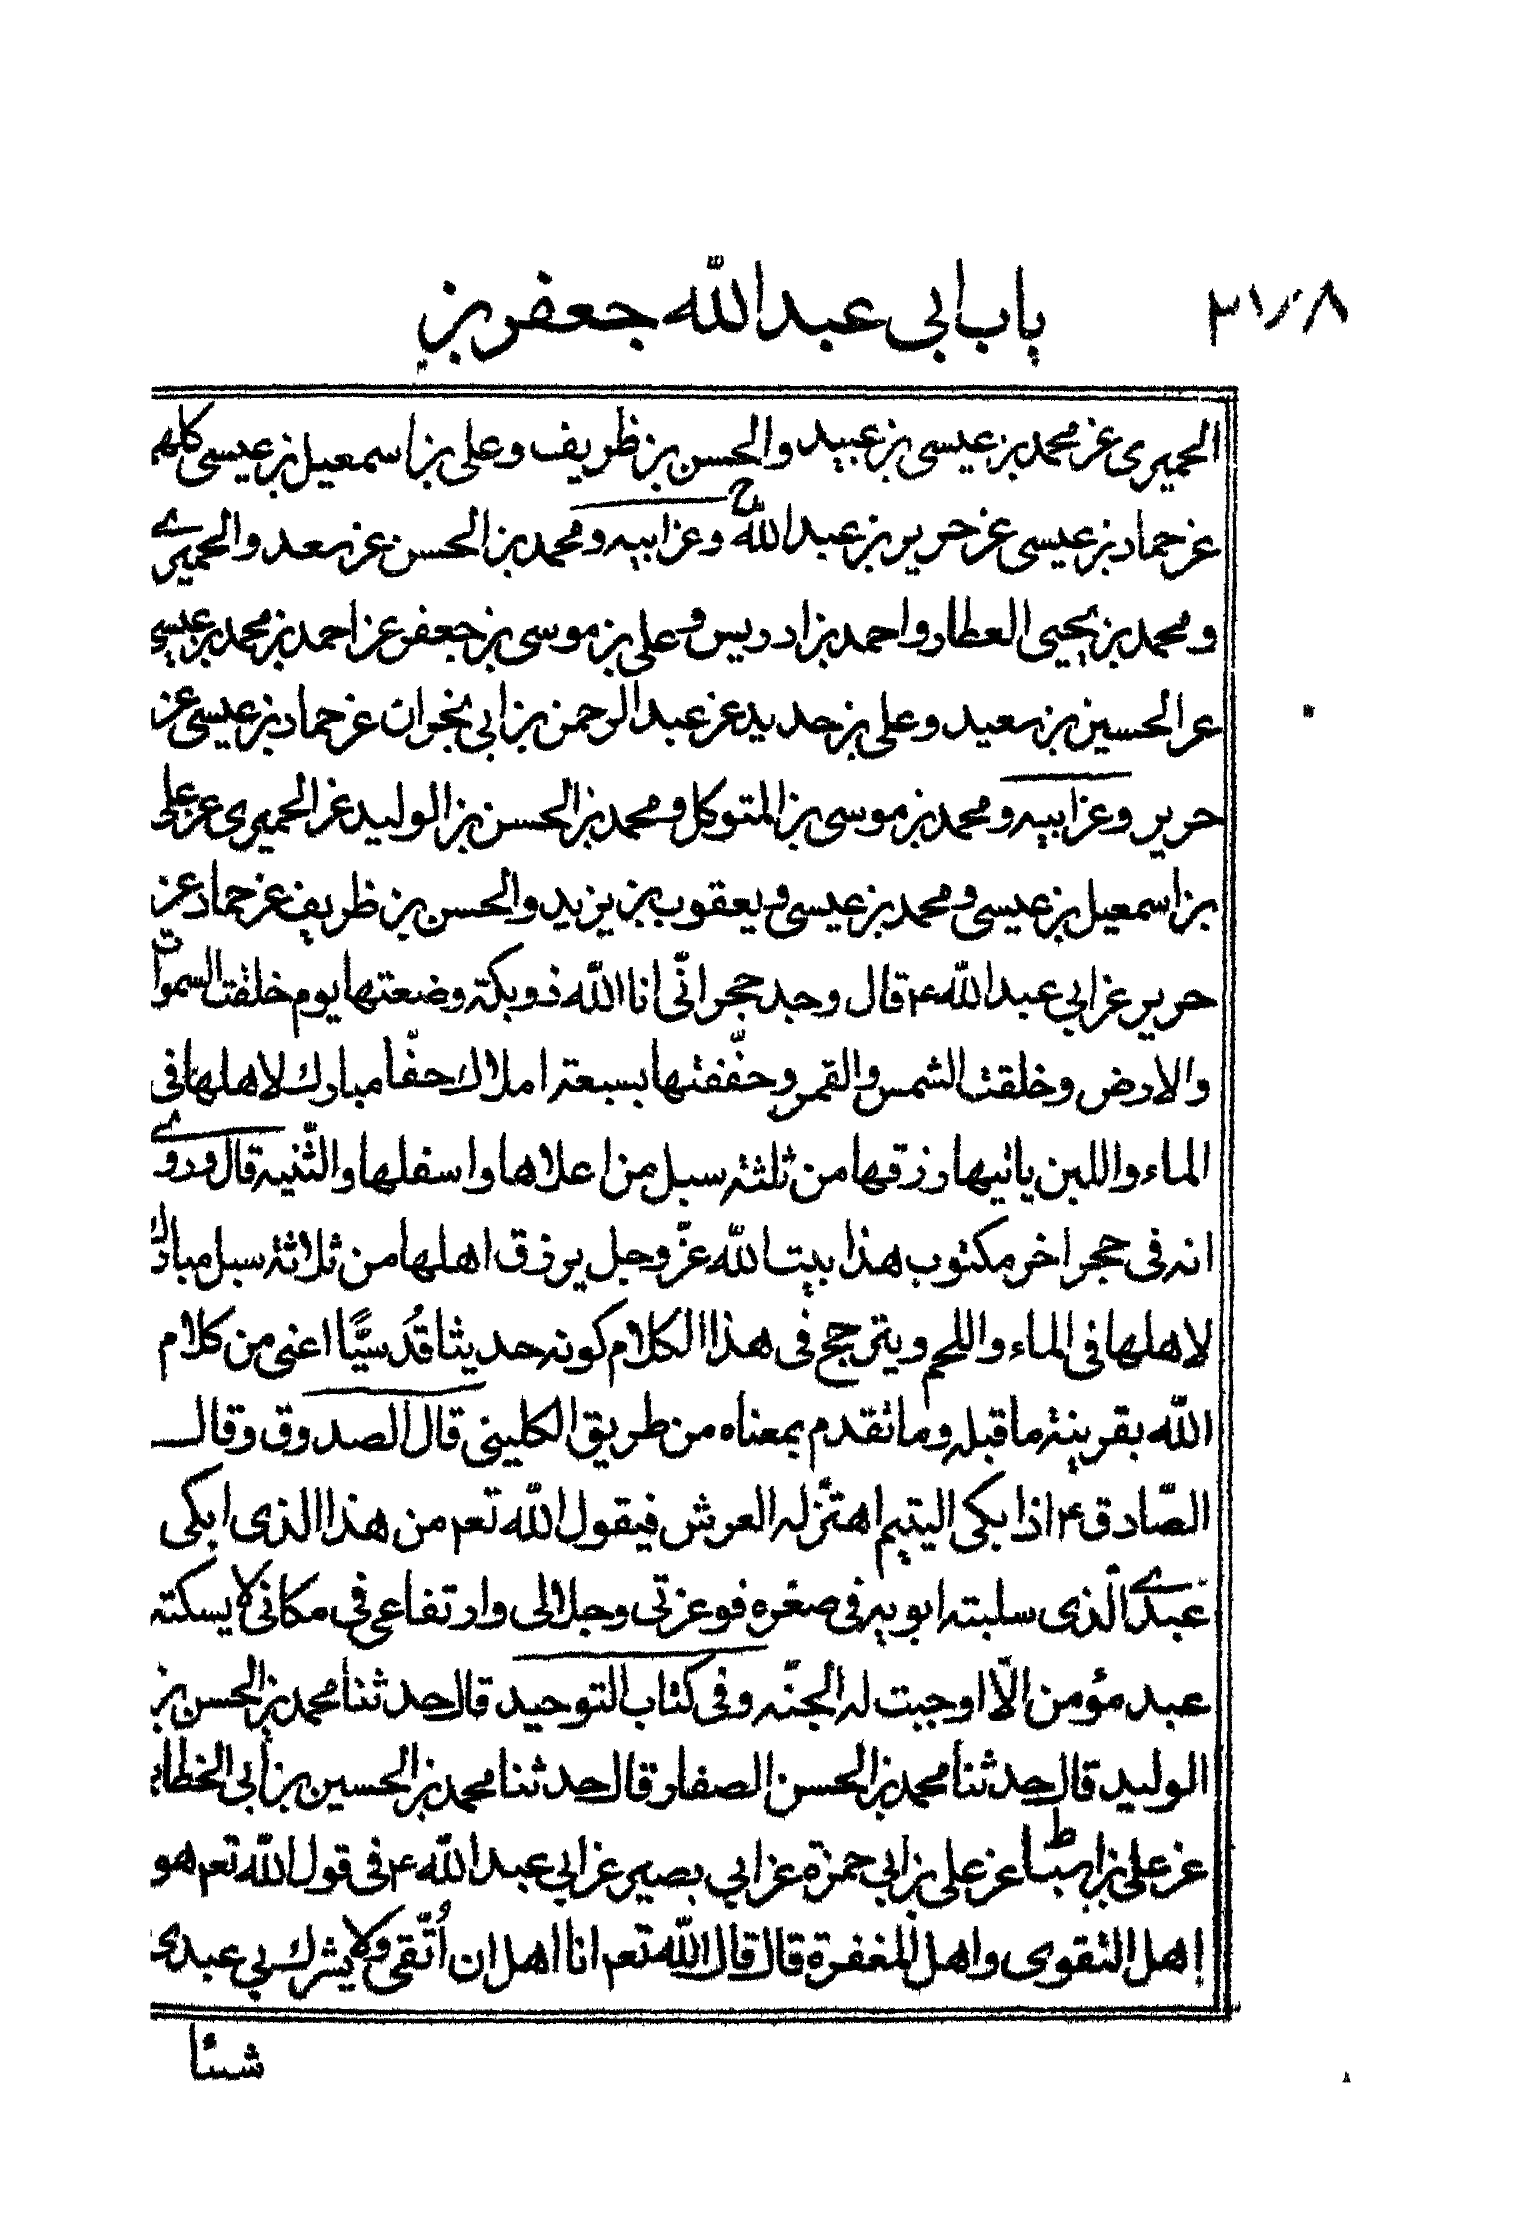 ٢١٠٨ باب ابي عبد الله جعفر بن
الحميرى عن محمد بن عيسى بن عبيد والحسن بن ظريف وعلى بن اسمعيل بن عيسى كلهم
عن حماد بن عيسى عن حريز بن عبد الله ح وعن ابيه ومحمد بن الحسن عن سعد والحميرے
ومحمد بن يحيى العطار واحمد بن ادريس وعلى بن موسى بن جعفر عن احمد بن محمد بن عيسى
عن الحسين بن سعيد وعلى بن حديد عن عبد الرحمن بن ابي نجران عن حماد بن عيسى عن
حريز وعن ابيه ومحمد بن موسى بن المتوكل ومحمد بن الحسن بن الوليد عن الحميرى عن على
بن اسمعيل بن عيسى ومحمد بن عيسى ويعقوب بن يزيد والحسن بن ظريف عن حماد عن
حريز عن ابي عبد الله ع قال وجد حجر انّى انا الله ذو بكة وضعتها يوم خلقت السموات
والارض وخلقت الشمس والقمر وحفّفتها بسبعة املاك حفّا مبارك لاهلها فى
الماء واللبن ياتيها رزقها من ثلثة سبل من اعلاها واسفلها والثّنية قال وروے
انه فى حجر اخر مكتوب هذا بيت الله عزّ وجل يرزق اهلها من ثلاثة سبل مبارك
لاهلها فى الماء واللحم ويترجح فى هذا الكلام كونه حديثا قُدسيًّا اعنى من كلام
الله بقرينة ما قبله وما تقدم بمعناه من طريق الكلينى قال الصدوق وقال
الصّادق ع اذا بكى اليتيم اهتزّ له العرش فيقول الله تعم من هذا الذى ابكى
عبدے الّذى سلبته ابويه فى صغره فوعزتى وجلالى وارتفاعى فى مكانى لا يسكته
عبد مؤمن الّا اوجبت له الجنّه وفى كتاب التوحيد قال حدثنا محمد بن الحسن بن
الوليد قال حدثنا محمد بن الحسن الصفار قال حدثنا محمد بن الحسين بن أبي الخطاب
عن على بن اسباط عن على بن ابي حمزة عن ابي بصير عن ابي عبد الله ع فى قول الله تعم هو
اهل التقوى واهل المغفرة قال قال الله تعم انا اهل ان أُتّقى ولا يشرك بي عبدى
شيئا